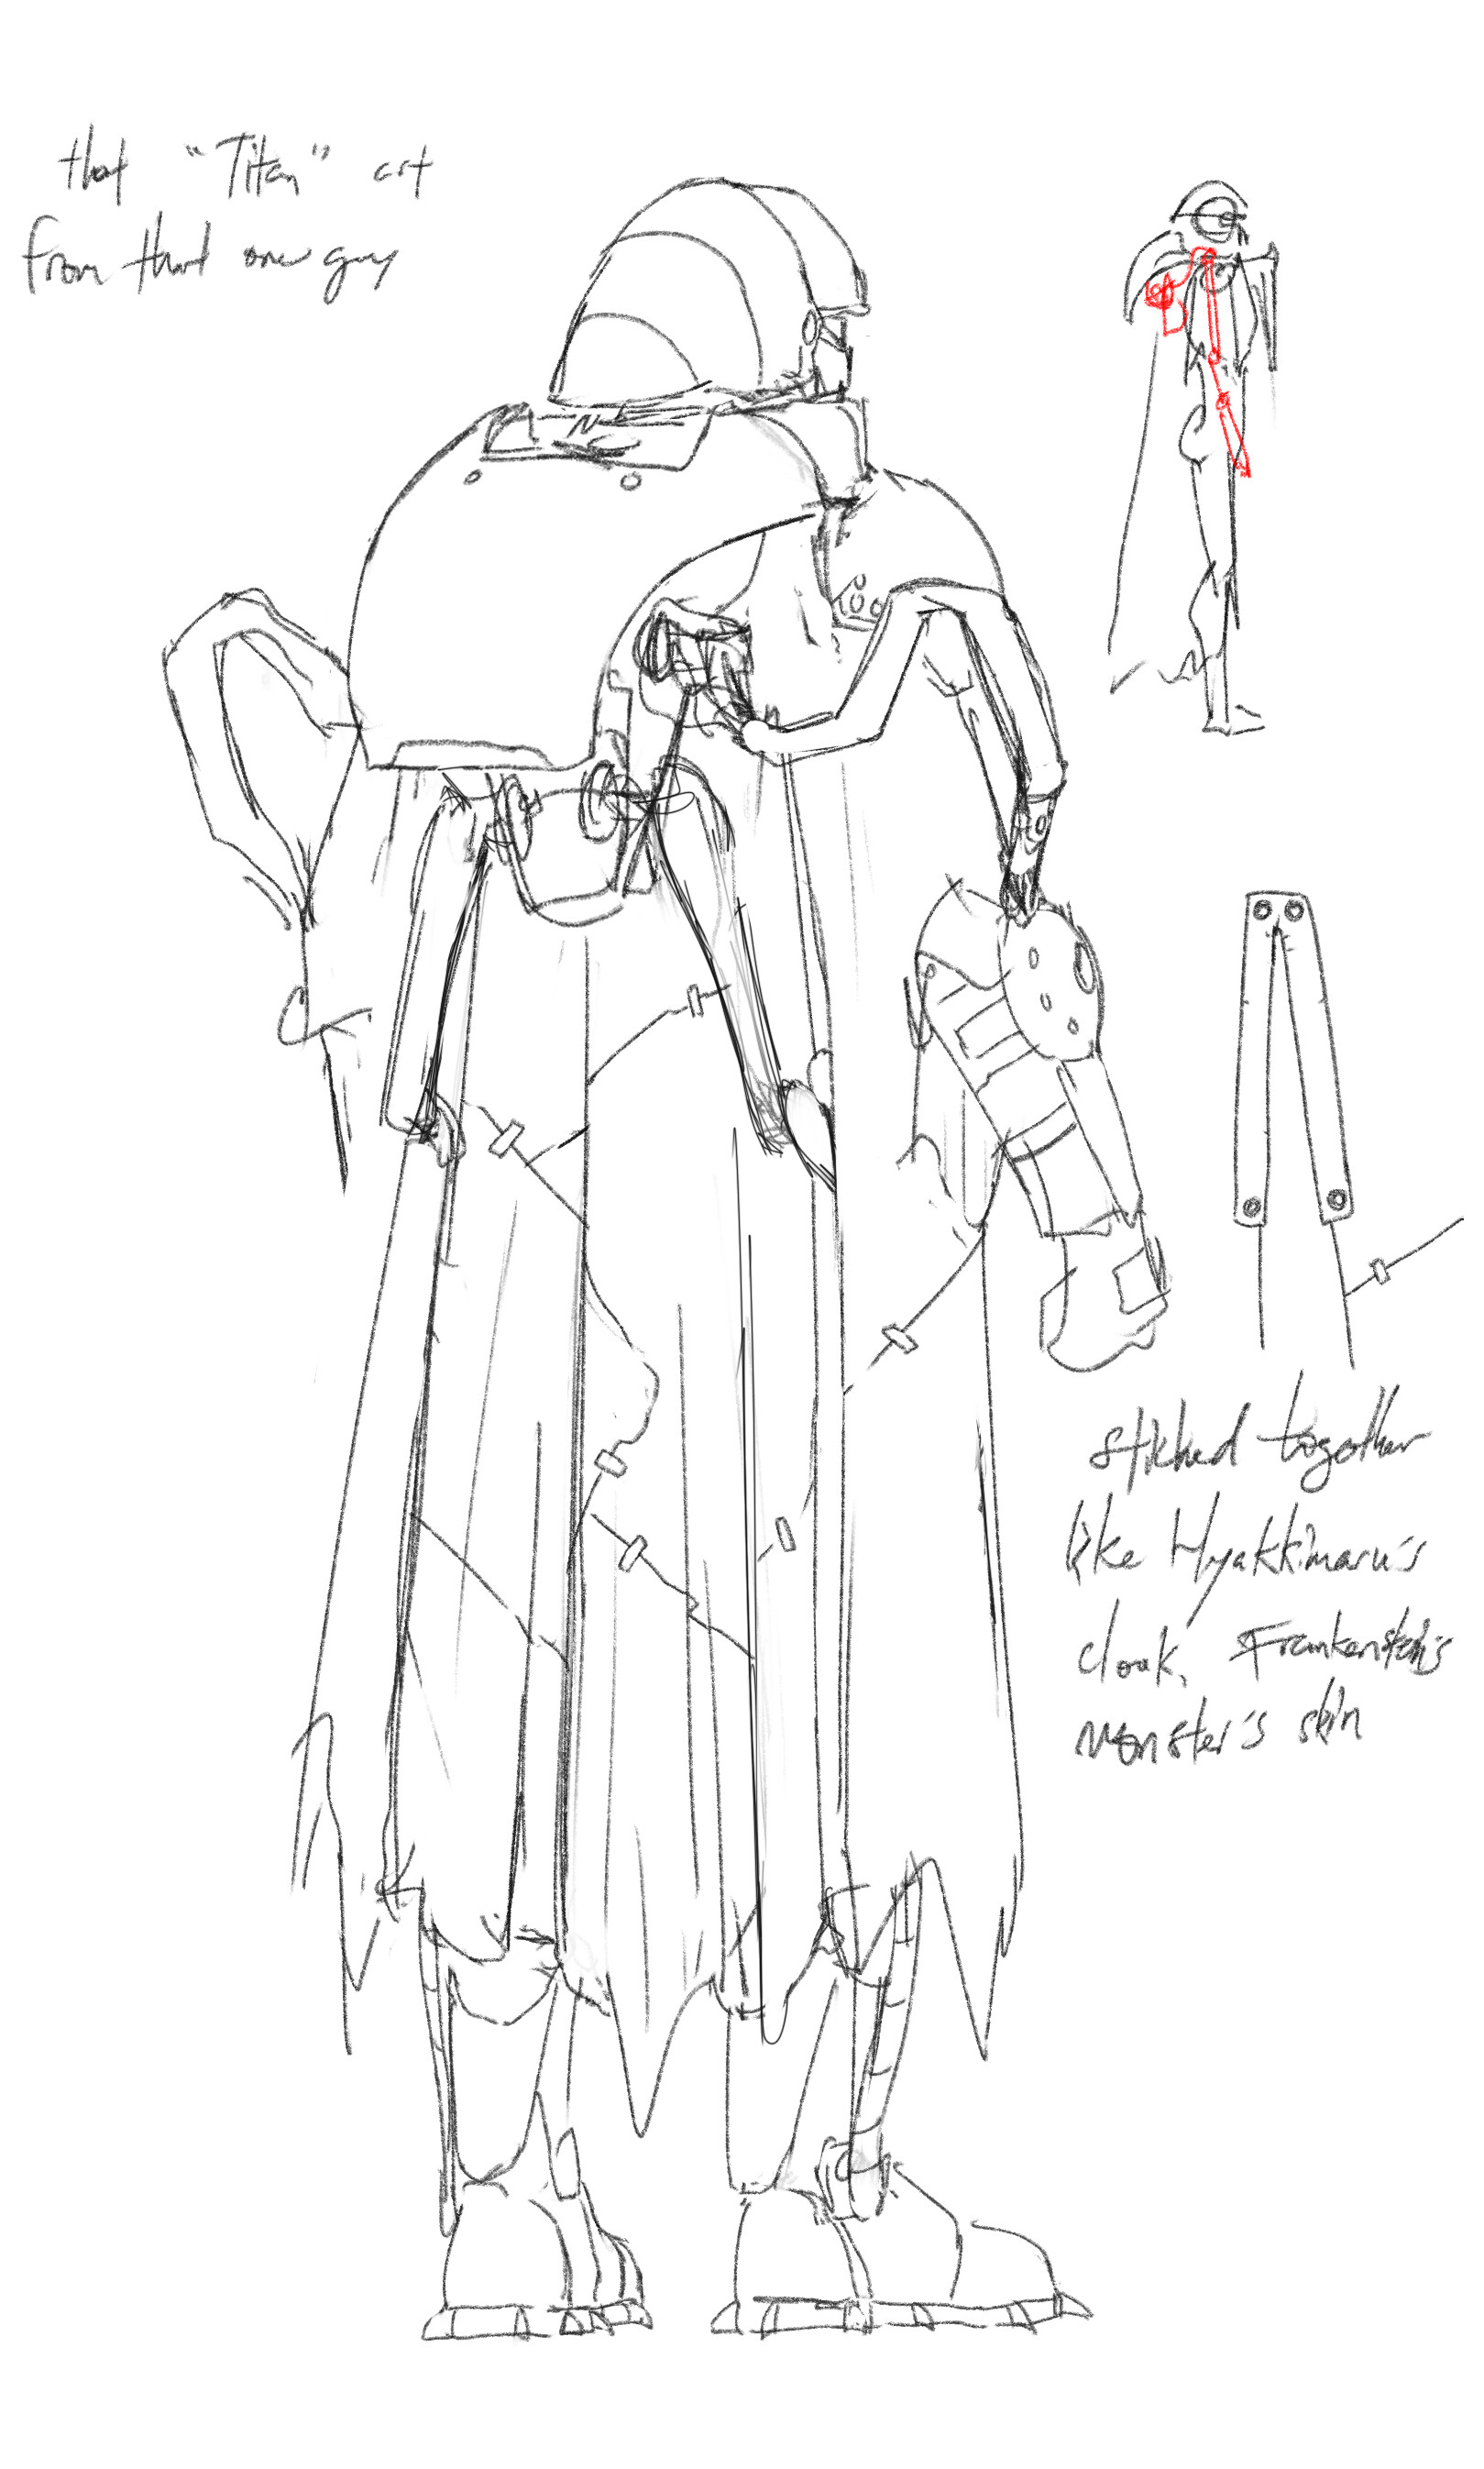 that "Titan" art
from that one guy
stitched together
like Hyakkimaru's
cloak, Frankenstein's
monster's skin